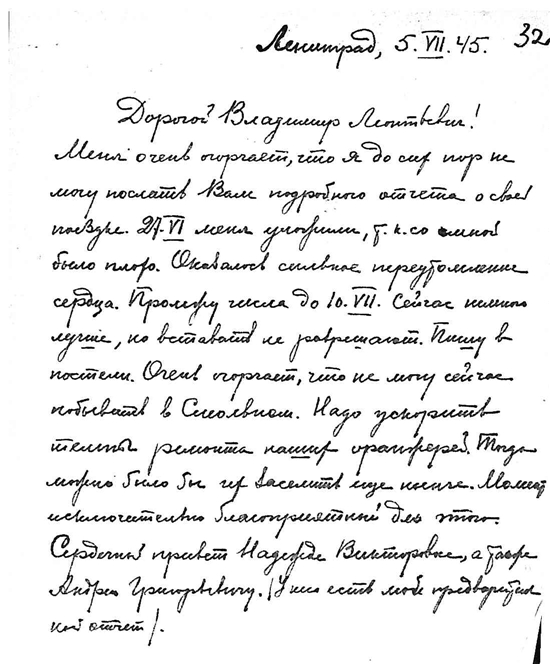 32
Ленинград, 5.VII.45.
Дорогой Владимир Леонтьевич!
Меня очень огорчает, что я до сих пор не
могу послать Вам подробного отчета о своей
поездке. 27.VI меня уложили, т.к. со мной
было плохо. Оказалось сильное переутомление
сердца. Пролежу числа до 10.VII. Сейчас немного
лучше, но вставать не разрешают. Пишу в
постели. Очень огорчает, что не могу сейчас
побывать в Смольном. Надо ускорить
темпы ремонта наших оранжерей. Тогда
можно было бы их заселить еще нынче. Момент
исключительно благоприятный для этого.
Сердечный привет Надежде Викторовне, а также
Андрею Григорьевичу. (У них есть мой предваритель
ный отчет).